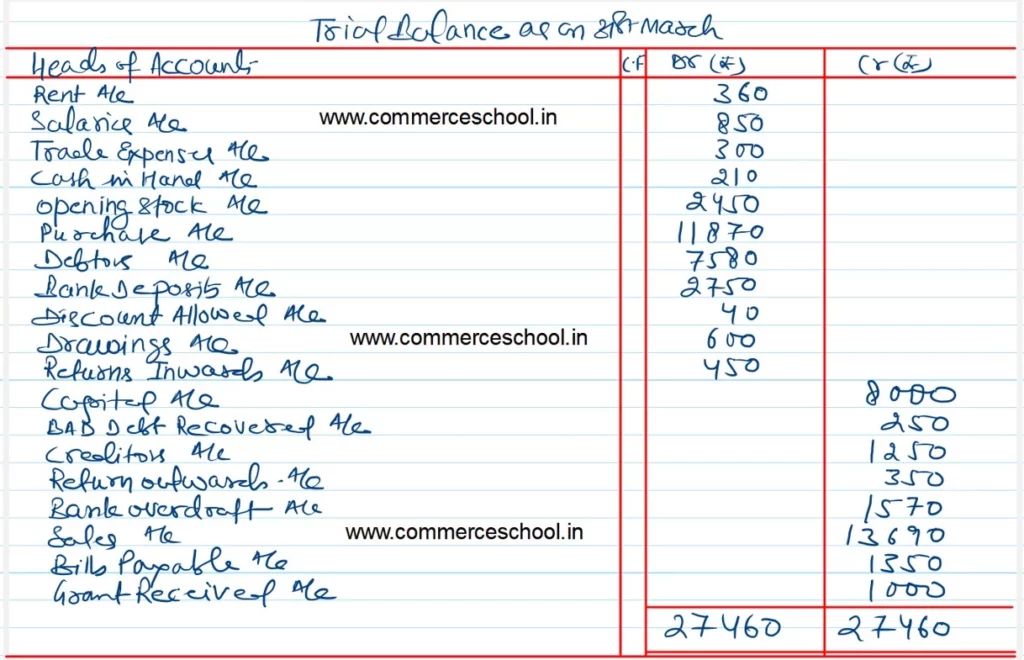 Trial Balance as on 31st March
Heads of Accounts L.F Dr (₹) Cr (₹)
Rent A/c 360
Salaries A/c 850
www.commerceschool.in
Trade Expenses A/c 300
Cash in Hand A/c 210
Opening Stock A/c 2450
Purchase A/c 11870
Debtors A/c 7580
Bank Deposits A/c 2750
Discount Allowed A/c 40
Drawings A/c 600
www.commerceschool.in
Returns Inwards A/c 450
Capital A/c 8000
BAD Debt Recovered A/c 250
Creditors A/c 1250
Return outwards A/c 350
Bank overdraft A/c 1570
Sales A/c 13690
www.commerceschool.in
Bills Payable A/c 1350
Grant Received A/c 1000
27460 27460